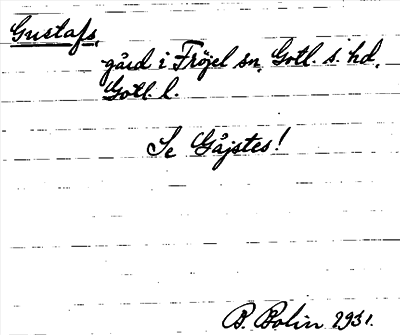 Gustafs,
gård i Fröjel sn, Gotl. s. hd,
Gotl. l.
Se Gåjstes!
B. Bolin 1931.